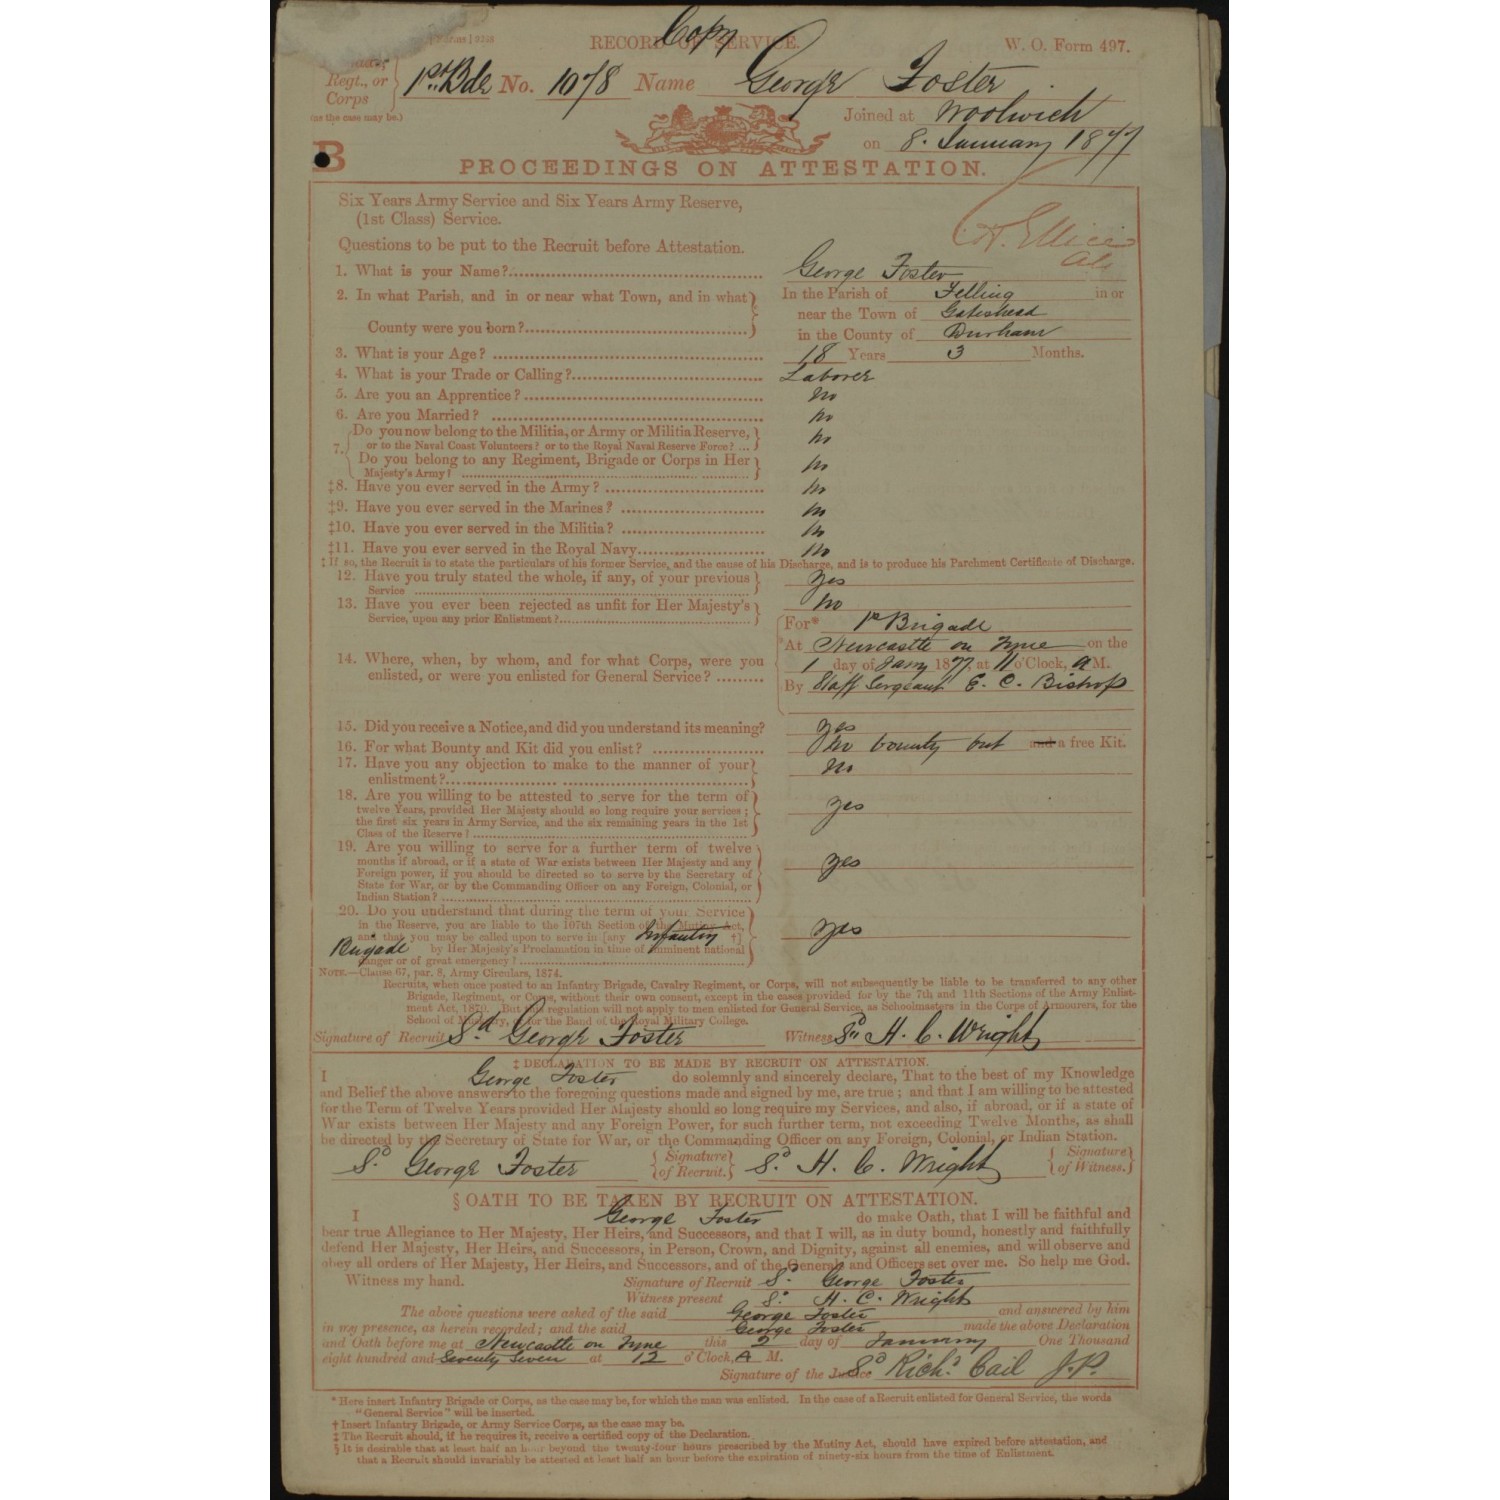 Copy
RECORD OF SERVICE.
W. O. Form 497.
Regt., or
Corps
(as the case may be.)
1st Bde No. 1078 Name George Foster
Joined at Woolwich
on 8. January 1877
B
PROCEEDINGS ON ATTESTATION.
Six Years Army Service and Six Years Army Reserve,
(1st Class) Service.
Questions to be put to the Recruit before Attestation.
1. What is your Name? George Foster
2. In what Parish, and in or near what Town, and in what County were you born?
In the Parish of Felling in or
near the Town of Gateshead
in the County of Durham
3. What is your Age? 18 Years 3 Months.
4. What is your Trade or Calling? Laborer
5. Are you an Apprentice? No
6. Are you Married? No
7. Do you now belong to the Militia, or Army or Militia Reserve,
or to the Naval Coast Volunteers? or to the Royal Naval Reserve Force? ... No
Do you belong to any Regiment, Brigade or Corps in Her
Majesty's Army? No
‡8. Have you ever served in the Army? No
‡9. Have you ever served in the Marines? No
‡10. Have you ever served in the Militia? No
‡11. Have you ever served in the Royal Navy No
‡ If so, the Recruit is to state the particulars of his former Service, and the cause of his Discharge, and is to produce his Parchment Certificate of Discharge.
12. Have you truly stated the whole, if any, of your previous
Service Yes
13. Have you ever been rejected as unfit for Her Majesty's
Service, upon any prior Enlistment? No
14. Where, when, by whom, and for what Corps, were you
enlisted, or were you enlisted for General Service?
For* 1st Brigade
*At Newcastle on Tyne on the
1 day of Jany 1877, at 11 o'Clock, A M.
By Staff Sergeant E. C. Bishop
15. Did you receive a Notice, and did you understand its meaning? Yes
16. For what Bounty and Kit did you enlist? No bounty but and a free Kit.
17. Have you any objection to make to the manner of your
enlistment? No
18. Are you willing to be attested to serve for the term of
twelve Years, provided Her Majesty should so long require your services;
the first six years in Army Service, and the six remaining years in the 1st
Class of the Reserve? Yes
19. Are you willing to serve for a further term of twelve
months if abroad, or if a state of War exists between Her Majesty and any
Foreign power, if you should be directed so to serve by the Secretary of
State for War, or by the Commanding Officer on any Foreign, Colonial, or
Indian Station? Yes
20. Do you understand that during the term of your Service
in the Reserve, you are liable to the 107th Section of the Mutiny Act,
and that you may be called upon to serve in [any Infantry †]
Brigade by Her Majesty's Proclamation in time of imminent national
danger or of great emergency? Yes
NOTE.—Clause 67, par. 8, Army Circulars, 1874.
Recruits, when once posted to an Infantry Brigade, Cavalry Regiment, or Corps, will not subsequently be liable to be transferred to any other
Brigade, Regiment, or Corps, without their own consent, except in the cases provided for by the 7th and 11th Sections of the Army Enlist-
ment Act, 1870. But this regulation will not apply to men enlisted for General Service, as Schoolmasters in the Corps of Armourers, for the
School of Musketry, or for the Band of the Royal Military College.
Signature of Recruit Sd George Foster Witness Sd H. C. Wright
‡ DECLARATION TO BE MADE BY RECRUIT ON ATTESTATION.
I George Foster do solemnly and sincerely declare, That to the best of my Knowledge
and Belief the above answers to the foregoing questions made and signed by me, are true; and that I am willing to be attested
for the Term of Twelve Years provided Her Majesty should so long require my Services, and also, if abroad, or if a state of
War exists between Her Majesty and any Foreign Power, for such further term, not exceeding Twelve Months, as shall
be directed by the Secretary of State for War, or the Commanding Officer on any Foreign, Colonial, or Indian Station.
Sd George Foster {Signature of Recruit.} Sd H. C. Wright {Signature of Witness.}
§ OATH TO BE TAKEN BY RECRUIT ON ATTESTATION.
I George Foster do make Oath, that I will be faithful and
bear true Allegiance to Her Majesty, Her Heirs, and Successors, and that I will, as in duty bound, honestly and faithfully
defend Her Majesty, Her Heirs, and Successors, in Person, Crown, and Dignity, against all enemies, and will observe and
obey all orders of Her Majesty, Her Heirs, and Successors, and of the Generals and Officers set over me. So help me God.
Witness my hand. Signature of Recruit Sd George Foster
Witness present Sd H. C. Wright
The above questions were asked of the said George Foster and answered by him
in my presence, as herein recorded; and the said George Foster made the above Declaration
and Oath before me at Newcastle on Tyne this 2 day of January One Thousand
eight hundred and Seventy Seven at 12 o'Clock, A M.
Signature of the Justice Sd Richd Cail J.P.
* Here insert Infantry Brigade or Corps, as the case may be, for which the man was enlisted. In the case of a Recruit enlisted for General Service, the words
"General Service" will be inserted.
† Insert Infantry Brigade, or Army Service Corps, as the case may be.
‡ The Recruit should, if he requires it, receive a certified copy of the Declaration.
§ It is desirable that at least half an hour beyond the twenty-four hours prescribed by the Mutiny Act, should have expired before attestation, and
that a Recruit should invariably be attested at least half an hour before the expiration of ninety-six hours from the time of Enlistment.